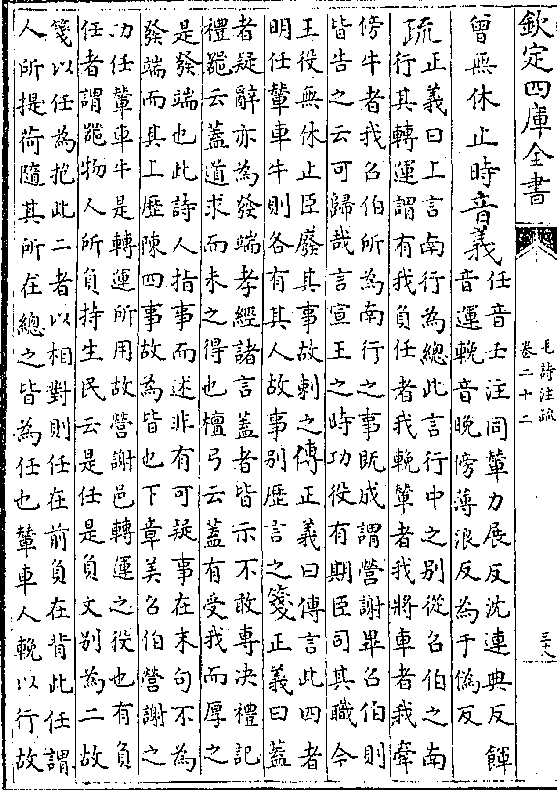 欽定四庫全書
毛詩注疏
卷二十二
三十八
曾無休止時音義
任音壬注同輦力展反沈連典反餫
音運輓音晚傍薄浪反為于偽反
疏
正義曰上言南行為總此言行中之别從召伯之南
行其轉運謂有我負任者我輓輦者我將車者我牽
傍牛者我召伯所為南行之事既成謂營謝畢召伯則
皆告之云可歸哉言宣王之時功役有期臣司其職今
王役無休止臣廢其事故刺之傳正義曰傳言此四者
明任輦車牛則各有其人故事别歴言之箋正義曰蓋
者疑辭亦為發端孝經諸言蓋者皆示不敢專决禮記
禮器云蓋道求而未之得也檀弓云蓋有受我而厚之
是發端也此詩人指事而述非有可疑事在末句不為
發端而其上歴陳四事故為皆也下章美召伯營謝之
功任輦車牛是轉運所用故營謝邑轉運之役也有負
任者謂器物人所負持生民云是任是負文别為二故
箋以任為抱此二者以相對則任在前負在背此任謂
人所提荷隨其所在總之皆為任也輦車人輓以行故